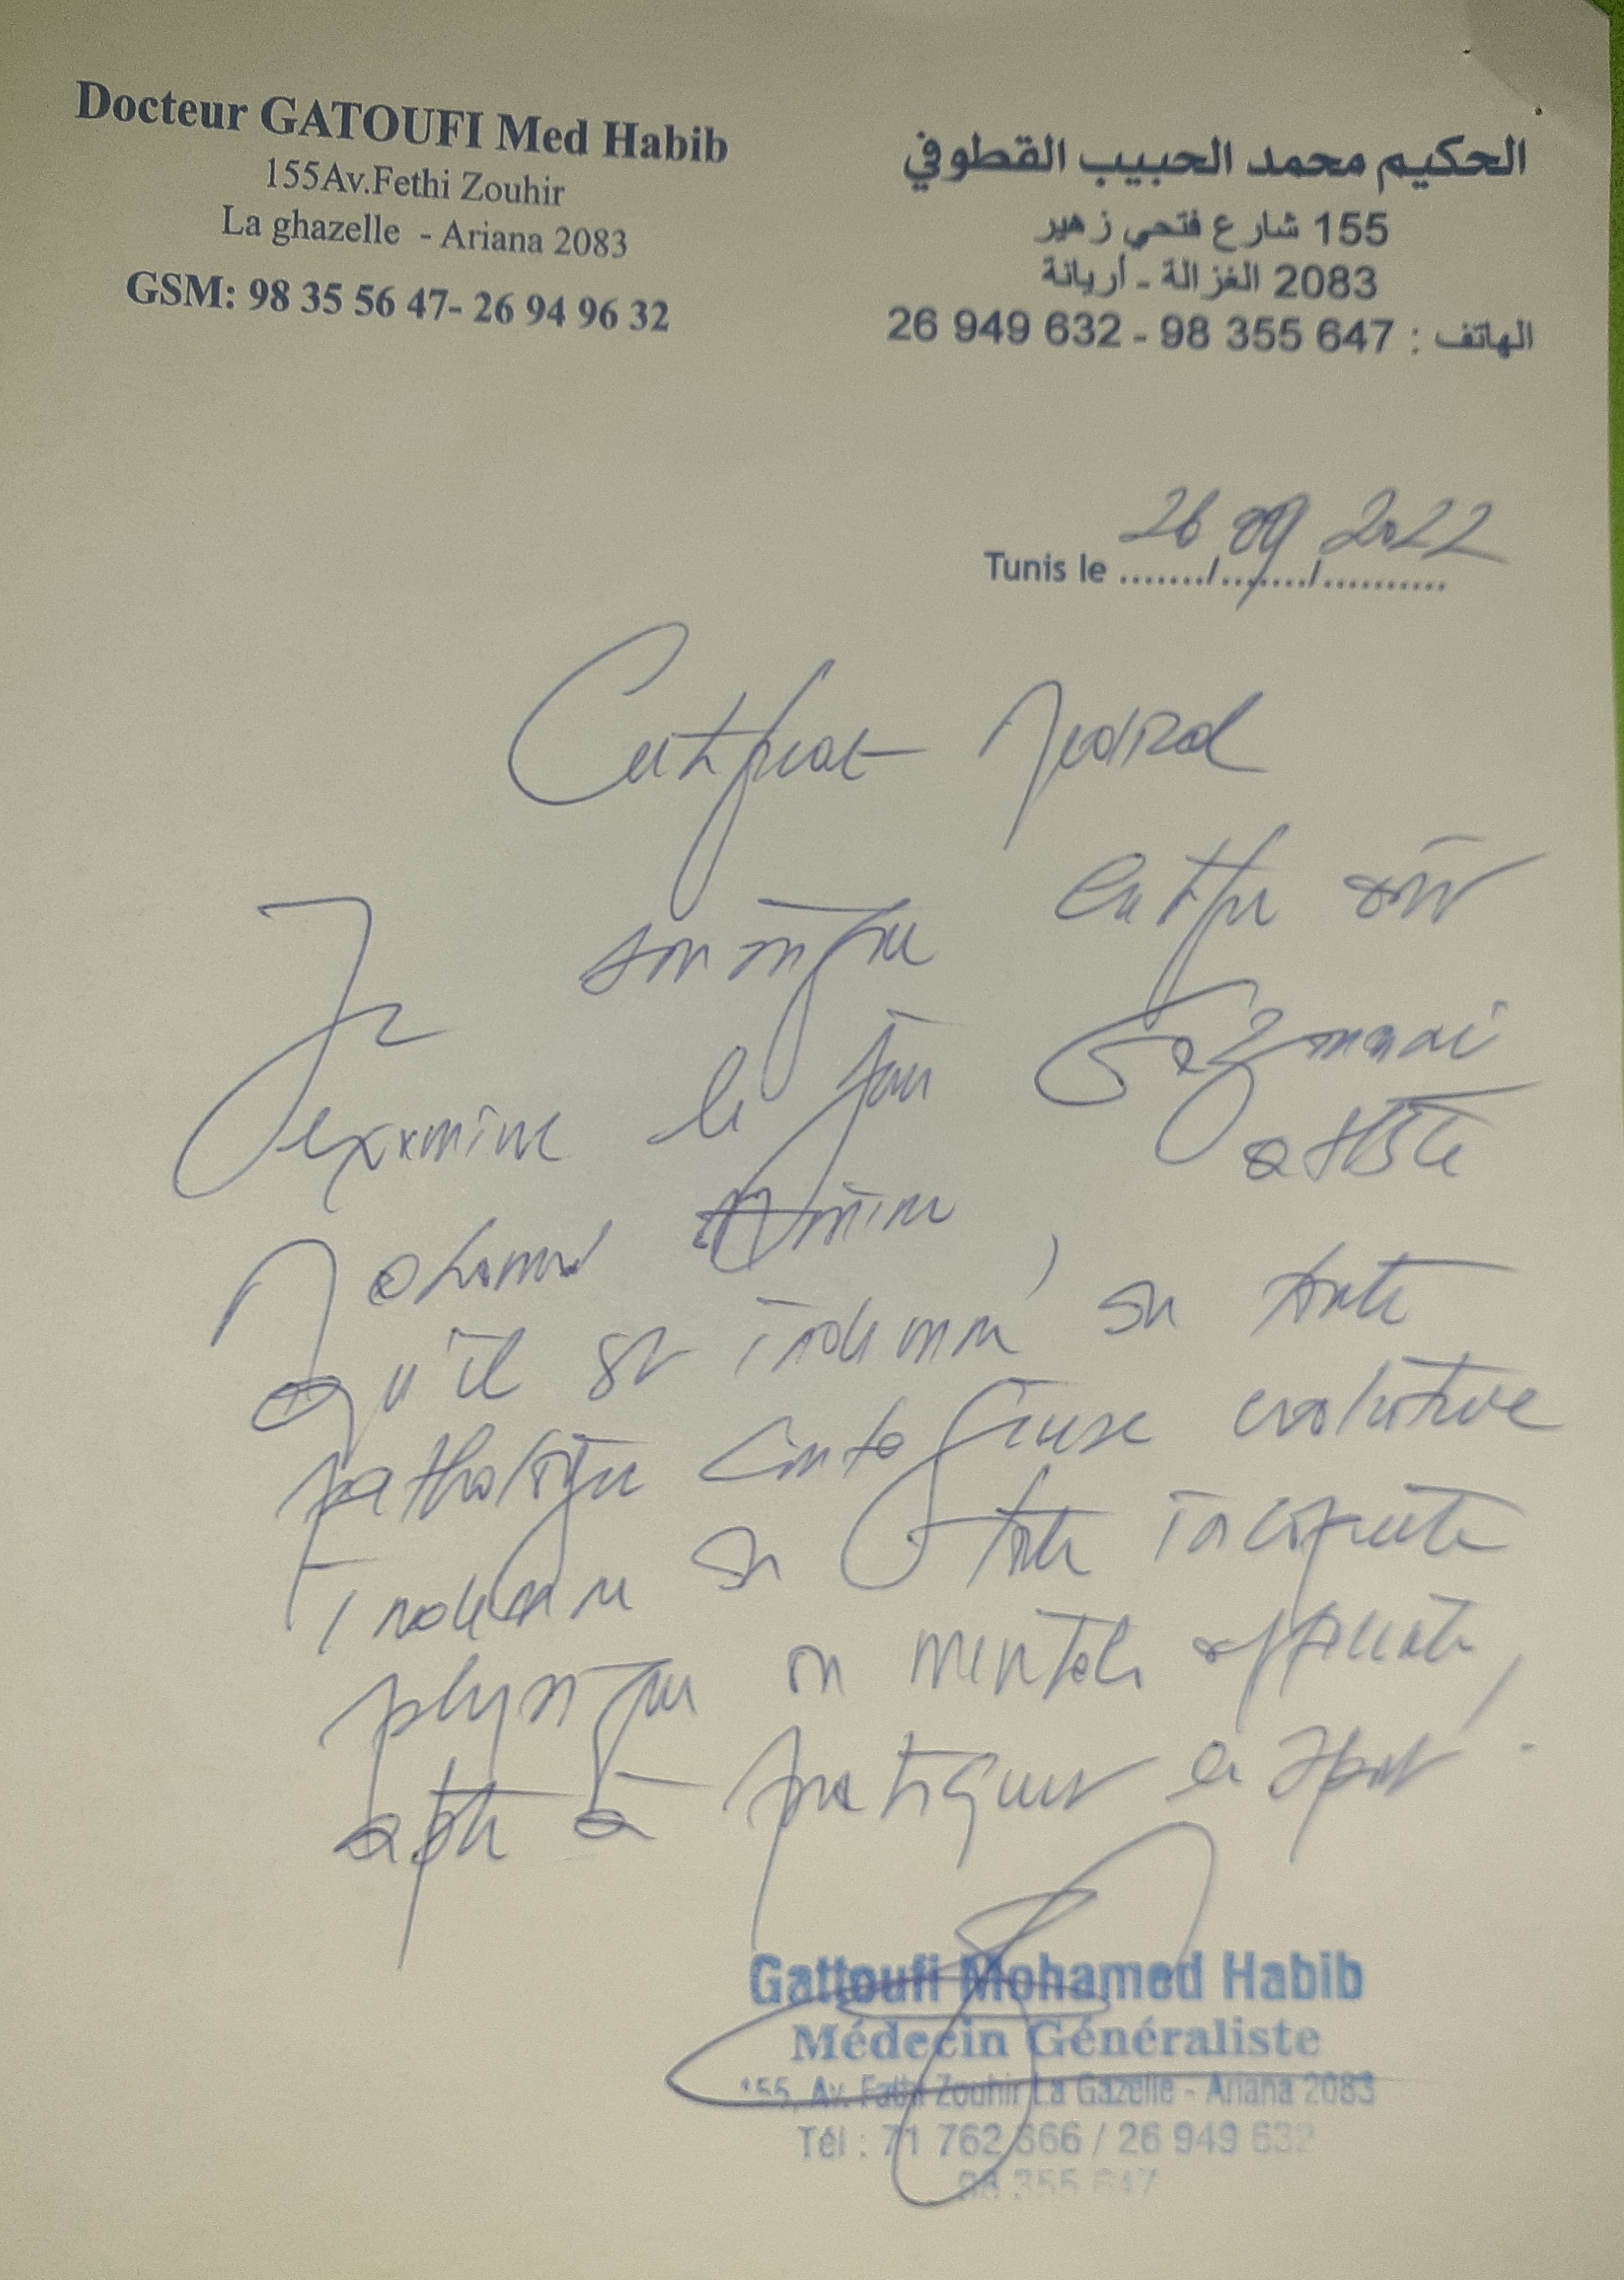 Docteur GATOUFI Med Habib
155Av.Fethi Zouhir
La ghazelle - Ariana 2083
GSM: 98 35 56 47- 26 94 96 32
الحكيم محمد الحبيب القطوفي
155 شارع فتحي زهير
2083 الغزالة - أريانة
الهاتف : 98 355 647 - 26 949 632
Tunis le 26/09/2022
Certificat Medical
Je soussigne certifie avoir
examine le jeune
Mohamed Amine, atteste
qu'il est indemne de toute
pathologie contagieuse evolutive
indemne de toute incapacite
physique ou mentale apparente,
apte à pratiquer le sport.
Gattoufi Mohamed Habib
Médecin Généraliste
155, Av. Fathi Zouhir La Gazelle - Ariana 2083
Tél : 71 762 366 / 26 949 632
98 355 647